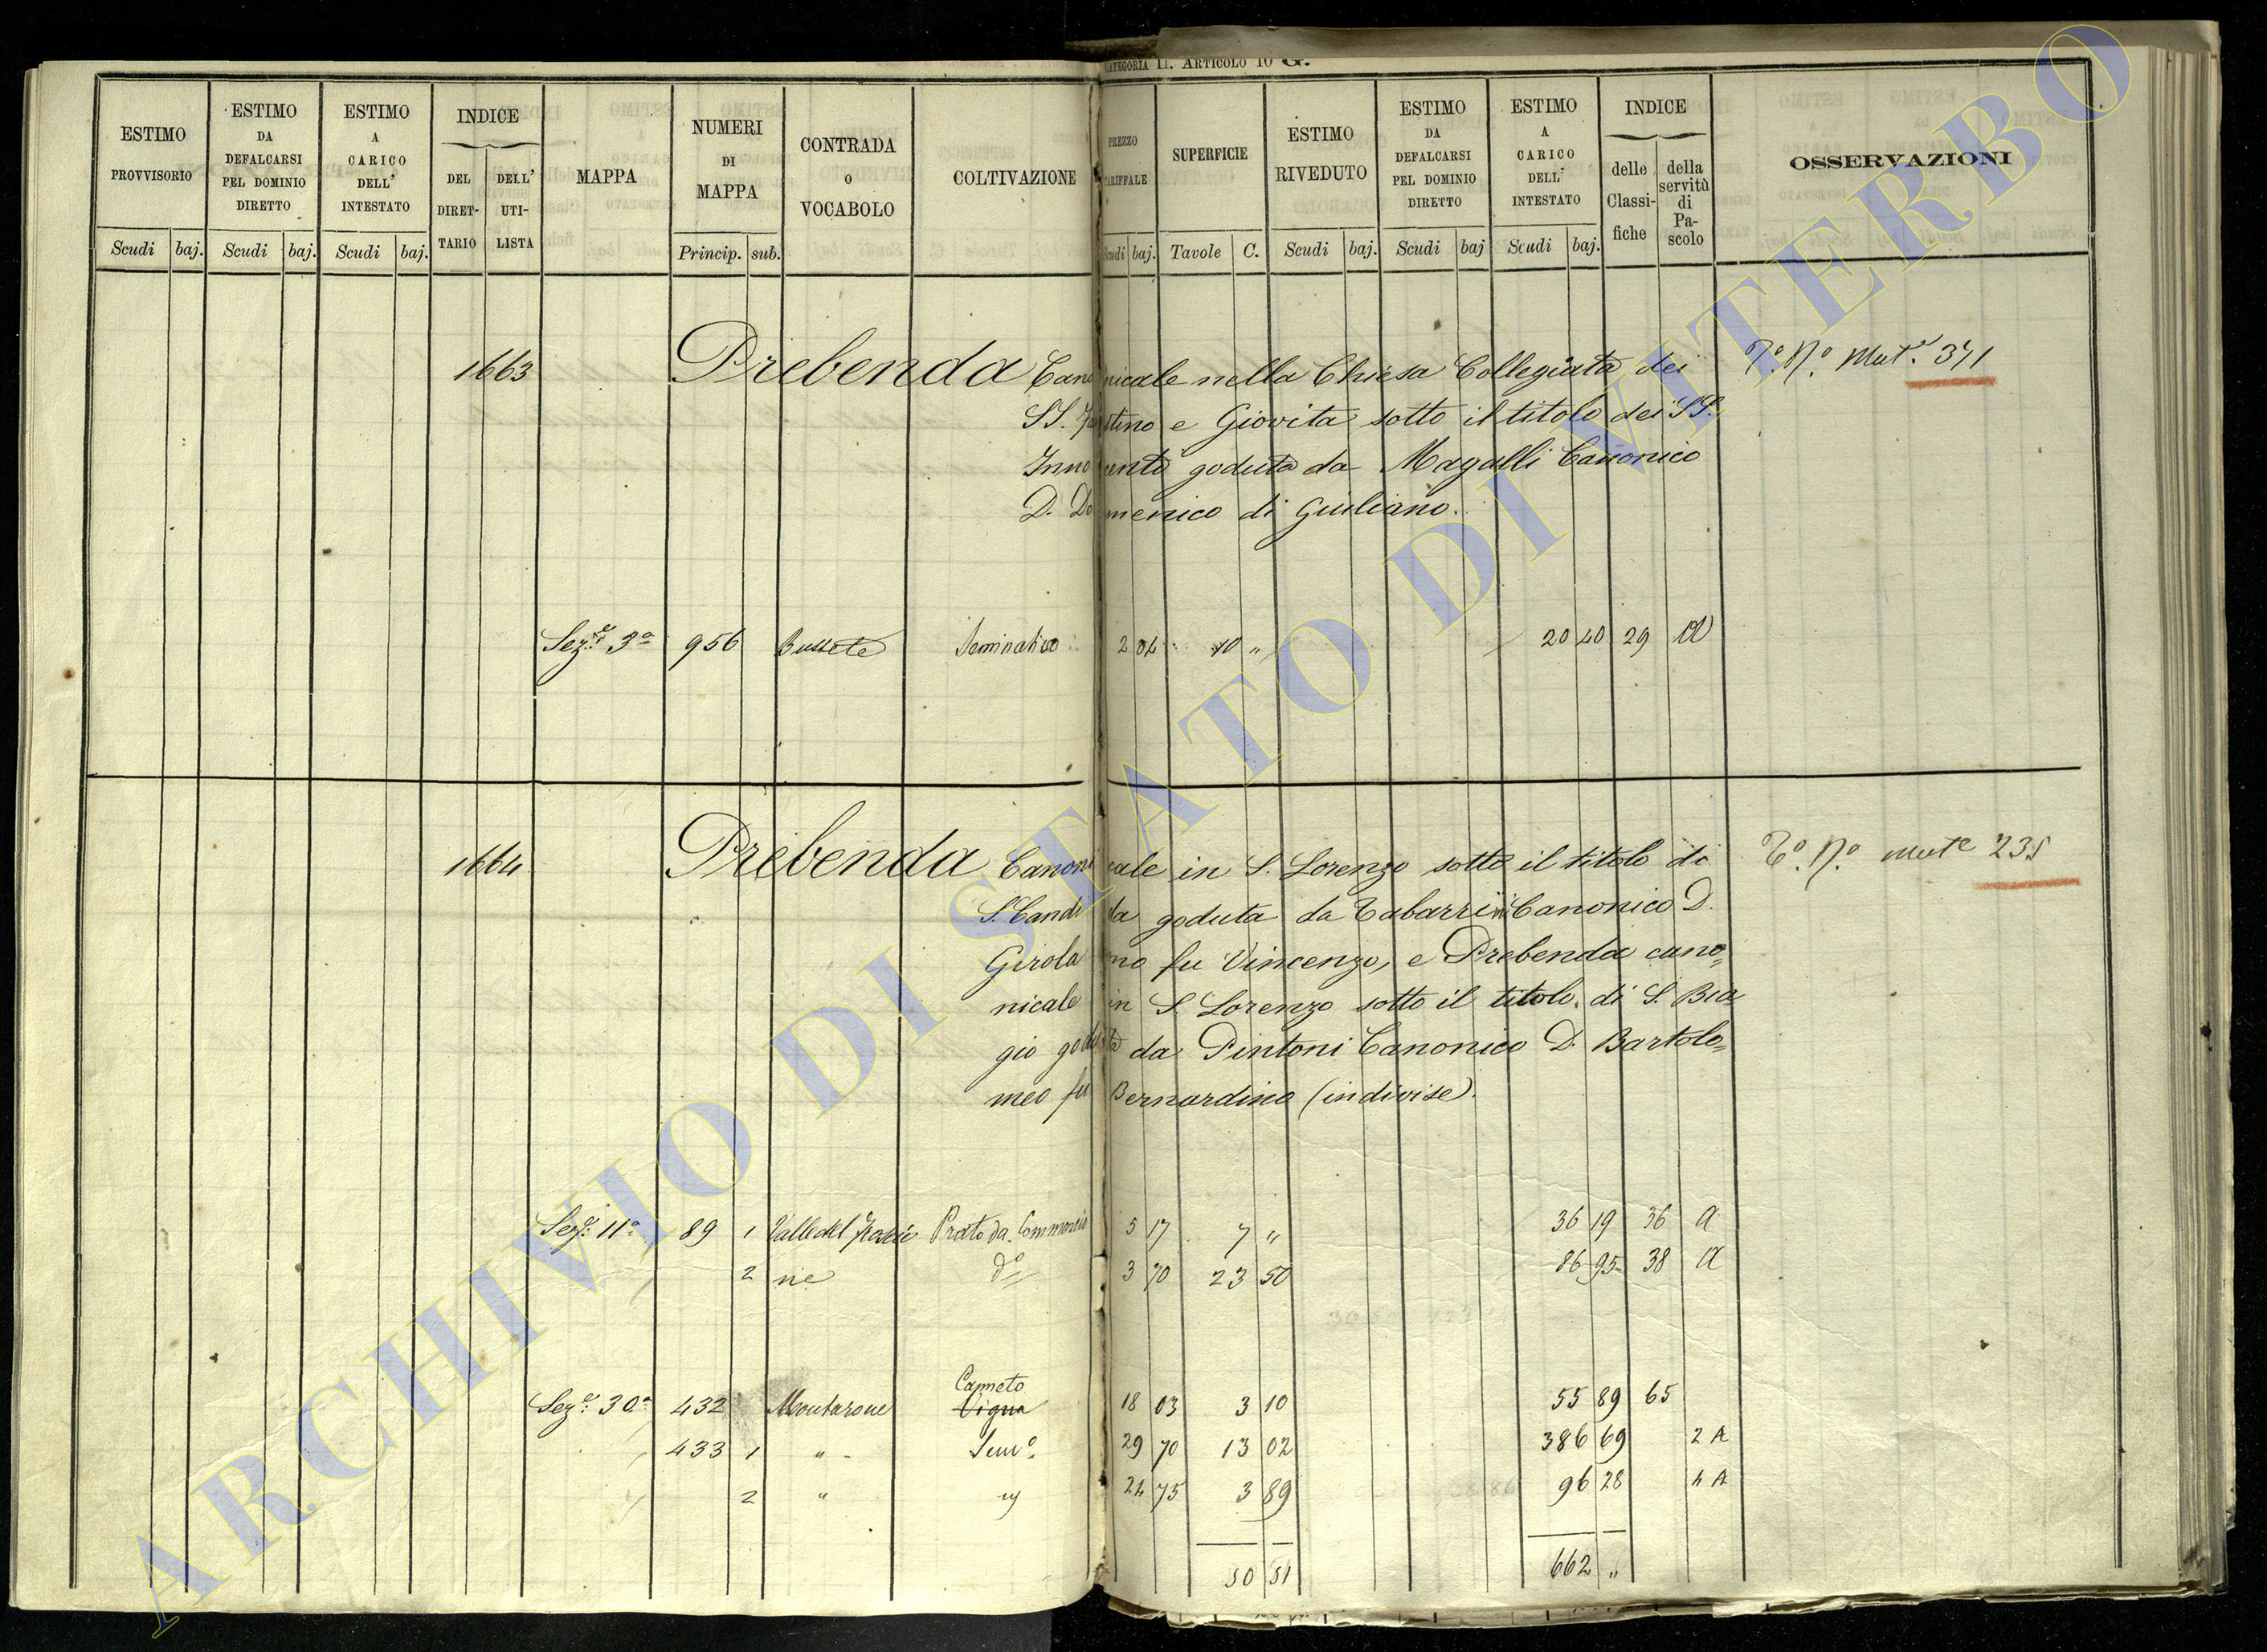 CATEGORIA II. ARTICOLO 10 G.
ESTIMO PROVVISORIO
ESTIMO DA DEFALCARSI PEL DOMINIO DIRETTO
ESTIMO A CARICO DELL' INTESTATO
INDICE
DEL DIRETTARIO
DELL' UTILISTA
MAPPA
NUMERI DI MAPPA
CONTRADA O VOCABOLO
COLTIVAZIONE
PREZZO TARIFFALE
SUPERFICIE
ESTIMO RIVEDUTO
ESTIMO DA DEFALCARSI PEL DOMINIO DIRETTO
ESTIMO A CARICO DELL' INTESTATO
INDICE
delle Classifiche
della servitù di Pascolo
OSSERVAZIONI
Scudi baj. Scudi baj. Scudi baj. Princip. sub. Scudi baj. Tavole C. Scudi baj. Scudi baj Scudi baj.
1663 Prebenda Canonicale nella Chiesa Collegiata dei To. No. Mut.e 371
SS. Faustino e Giovita sotto il titolo dei SS.
Innocenti goduta da Magalli Canonico
D. Domenico di Giuliano.
Sez.e 3a 956 Bussete Seminativo 2 04 10 " 20 40 29 A
1664 Prebenda Canonicale in S. Lorenzo sotto il titolo di To. No. mute 235
S. Candida goduta da Tabarrini Canonico D.
Girolamo fu Vincenzo, e Prebenda cano=
nicale in S. Lorenzo sotto il titolo di S. Bia
gio goduta da Pintoni Canonico D. Bartolo=
meo fu Bernardino (indivise).
Sez.e 11a 89 1 Valle del 5 17 7 " 36 19 36 A
2 ne do 3 70 23 50 86 95 38 A
Canneto
Sez.e 30a 432 Montarone Vigna 18 03 3 10 55 89 65
433 1 " Semo. 29 70 13 02 386 69 2 A
2 " " 24 75 3 89 96 28 4 A
50 51 662 "
ARCHIVIO DI STATO DI VITERBO